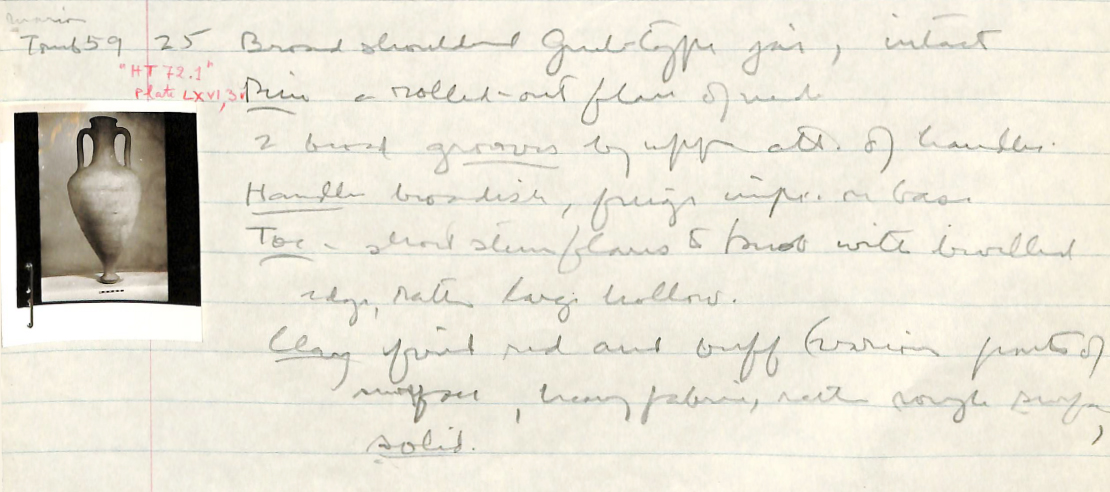 Marion
Tomb 59 25 Broad shouldered Greek-type jar, intact
"HT 72.1"
Plate LXVI, 3
Rim a rolled-out flan
2 broad grooves by upper att. of handles.
Handles broadish, finger impr. on base
Toe - short stem flares to knob with bevelled
edge, rather large hollow.
Clay fired red and buff (various parts of
surface, heavy fabric, rather rough surface,
solid.